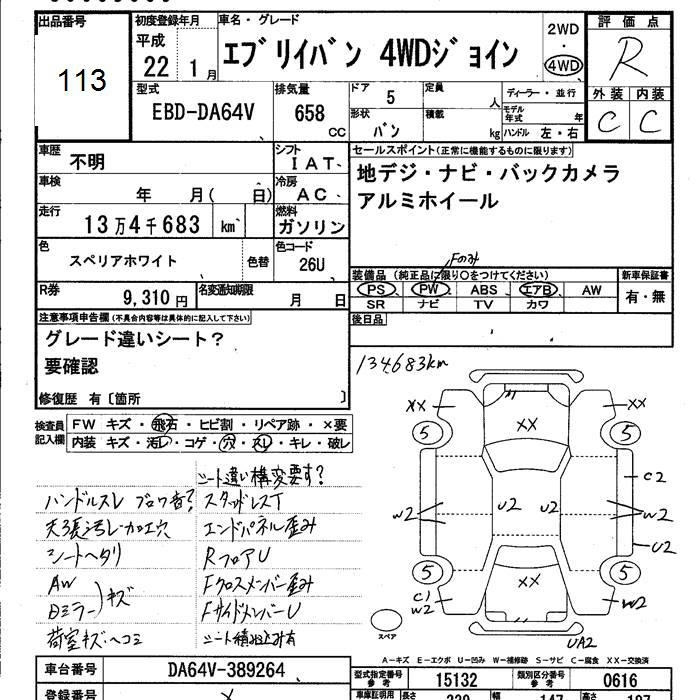 出品番号
113
初度登録年月
平成
22 1月
車名・グレード
エブリイバン 4WDジョイン
2WD
・
4WD
評価点
R
外装 内装
C C
型式
EBD-DA64V
排気量
658
CC
ドア
5
定員
人
ディーラー・並行
形状
バン
積載
kg
モデル年式 年
ハンドル 左・右
車歴
不明
シフト
IAT
セールスポイント(正常に機能するものに限ります)
地デジ・ナビ・バックカメラ
アルミホイール
車検
年 月( 日)
冷房
AC
走行
13万4千683 km
燃料
ガソリン
色
スペリアホワイト
色替
色コード
26U
Fのみ
装備品(純正品に限り○をつけてください)
新車保証書
PS PW ABS エアB AW
有・無
SR ナビ TV カワ
R券
9,310円
名変通知期限
月 日
後日品
注意事項申告欄(不具合内容等は具体的に記入して下さい)
グレード違いシート?
要確認
修復歴 有〔箇所 〕
134683km
検査員
記入欄
FW キズ・飛石・ヒビ割・リペア跡・×要
内装 キズ・汚レ・コゲ・穴・スレ・キレ・破レ
シート違い構変要す?
ハンドルスレ ブロワ音?
スタッドレスT
天張汚レ・加工穴
エンドパネル歪み
シートヘタリ
RフロアU
AW
Dミラー)キズ
Fクロスメンバー歪み
FサイドメンバーU
荷室キズ・ヘコミ
シート積み込み有
XX
XX
XX
5
5
C2
W2
U2
U2
W2
U2
5
5
XX
C1
W2
W2
スペア
UA2
A-キズ E-エクボ U-凹み W-補修跡 S-サビ C-腐食 XX-交換済
車台番号
DA64V-389264
型式指定番号
参考
15132
類別区分番号
参考
0616
登録番号
車庫証明用
長さ